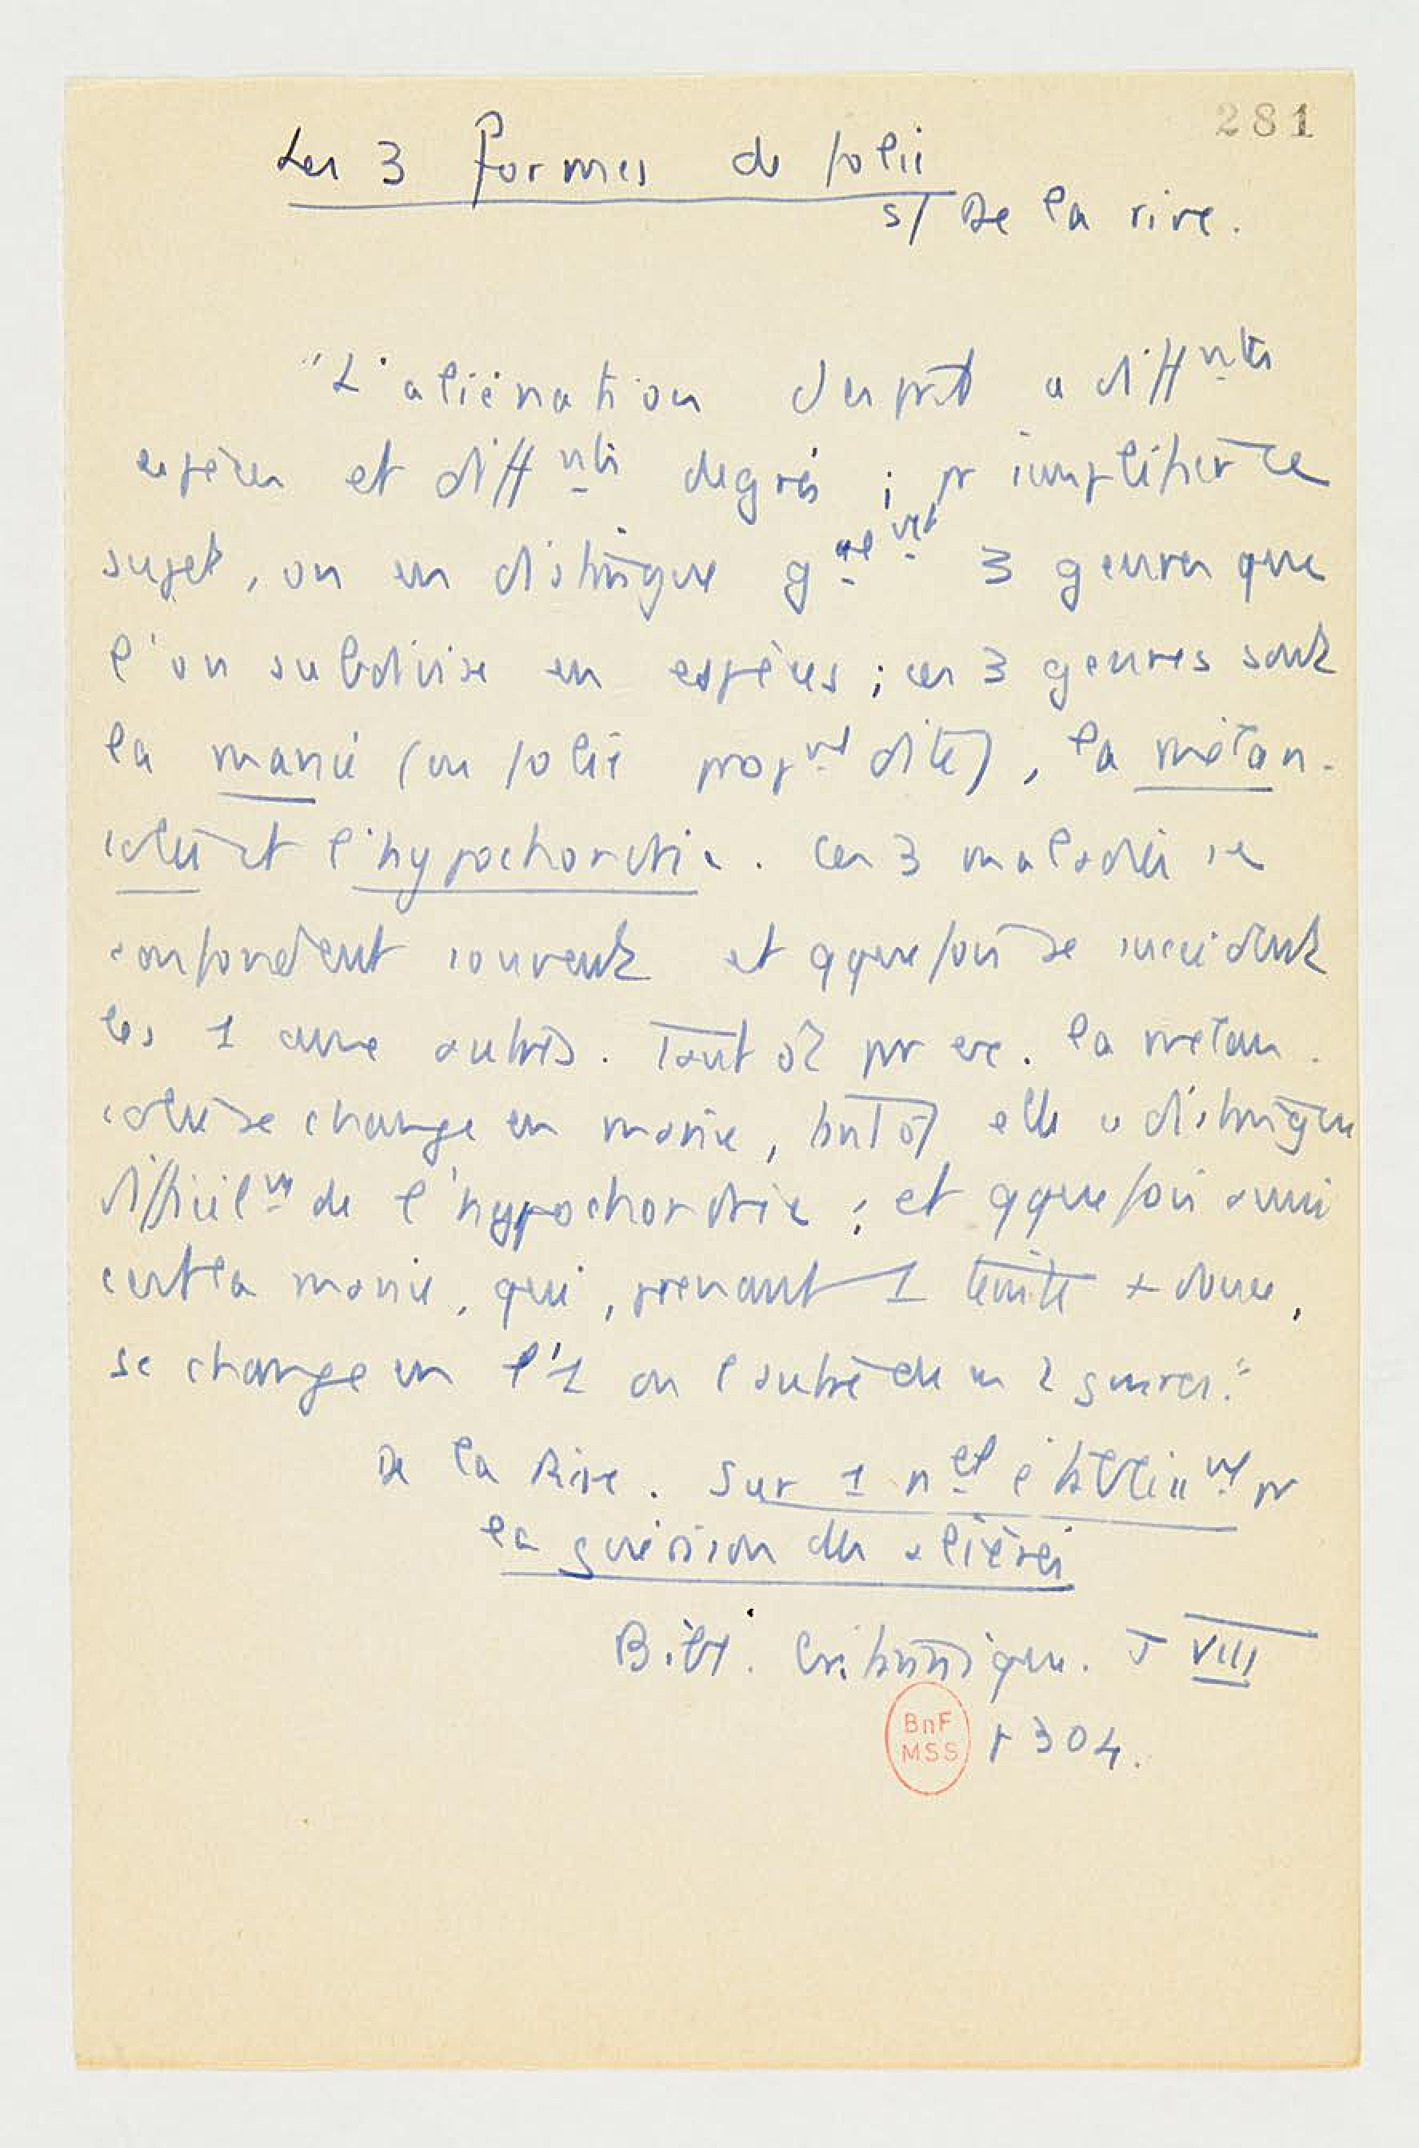 281
Les 3 formes de folie
s/ De la rive.
"L'aliénation d'esprit a diffntes
espèces et diffnts degrés ; pr simplifier ce
sujet, on en distingue gnelvnt 3 genres que
l'on subdivise en espèces ; ces 3 genres sont
la manie (ou folie propnt dite), la mélan-
colie et l'hypochondrie. Ces 3 maladies se
confondent souvent et qquefois se succèdent
les 1 aux autres. Tantôt pr ex. la mélan-
colie se change en manie, tantôt elle se distingue
difficilnt de l'hypochondrie ; et qquefois aussi
c'est la manie, qui, prenant 1 teinte + douce,
se change en l'1 ou l'autre de ces 2 genres."
De la Rive. Sur 1 nel établissnt pr
la guérison des aliénés
Bibl. britannique. T VIII
BnF
MSS
p 304.